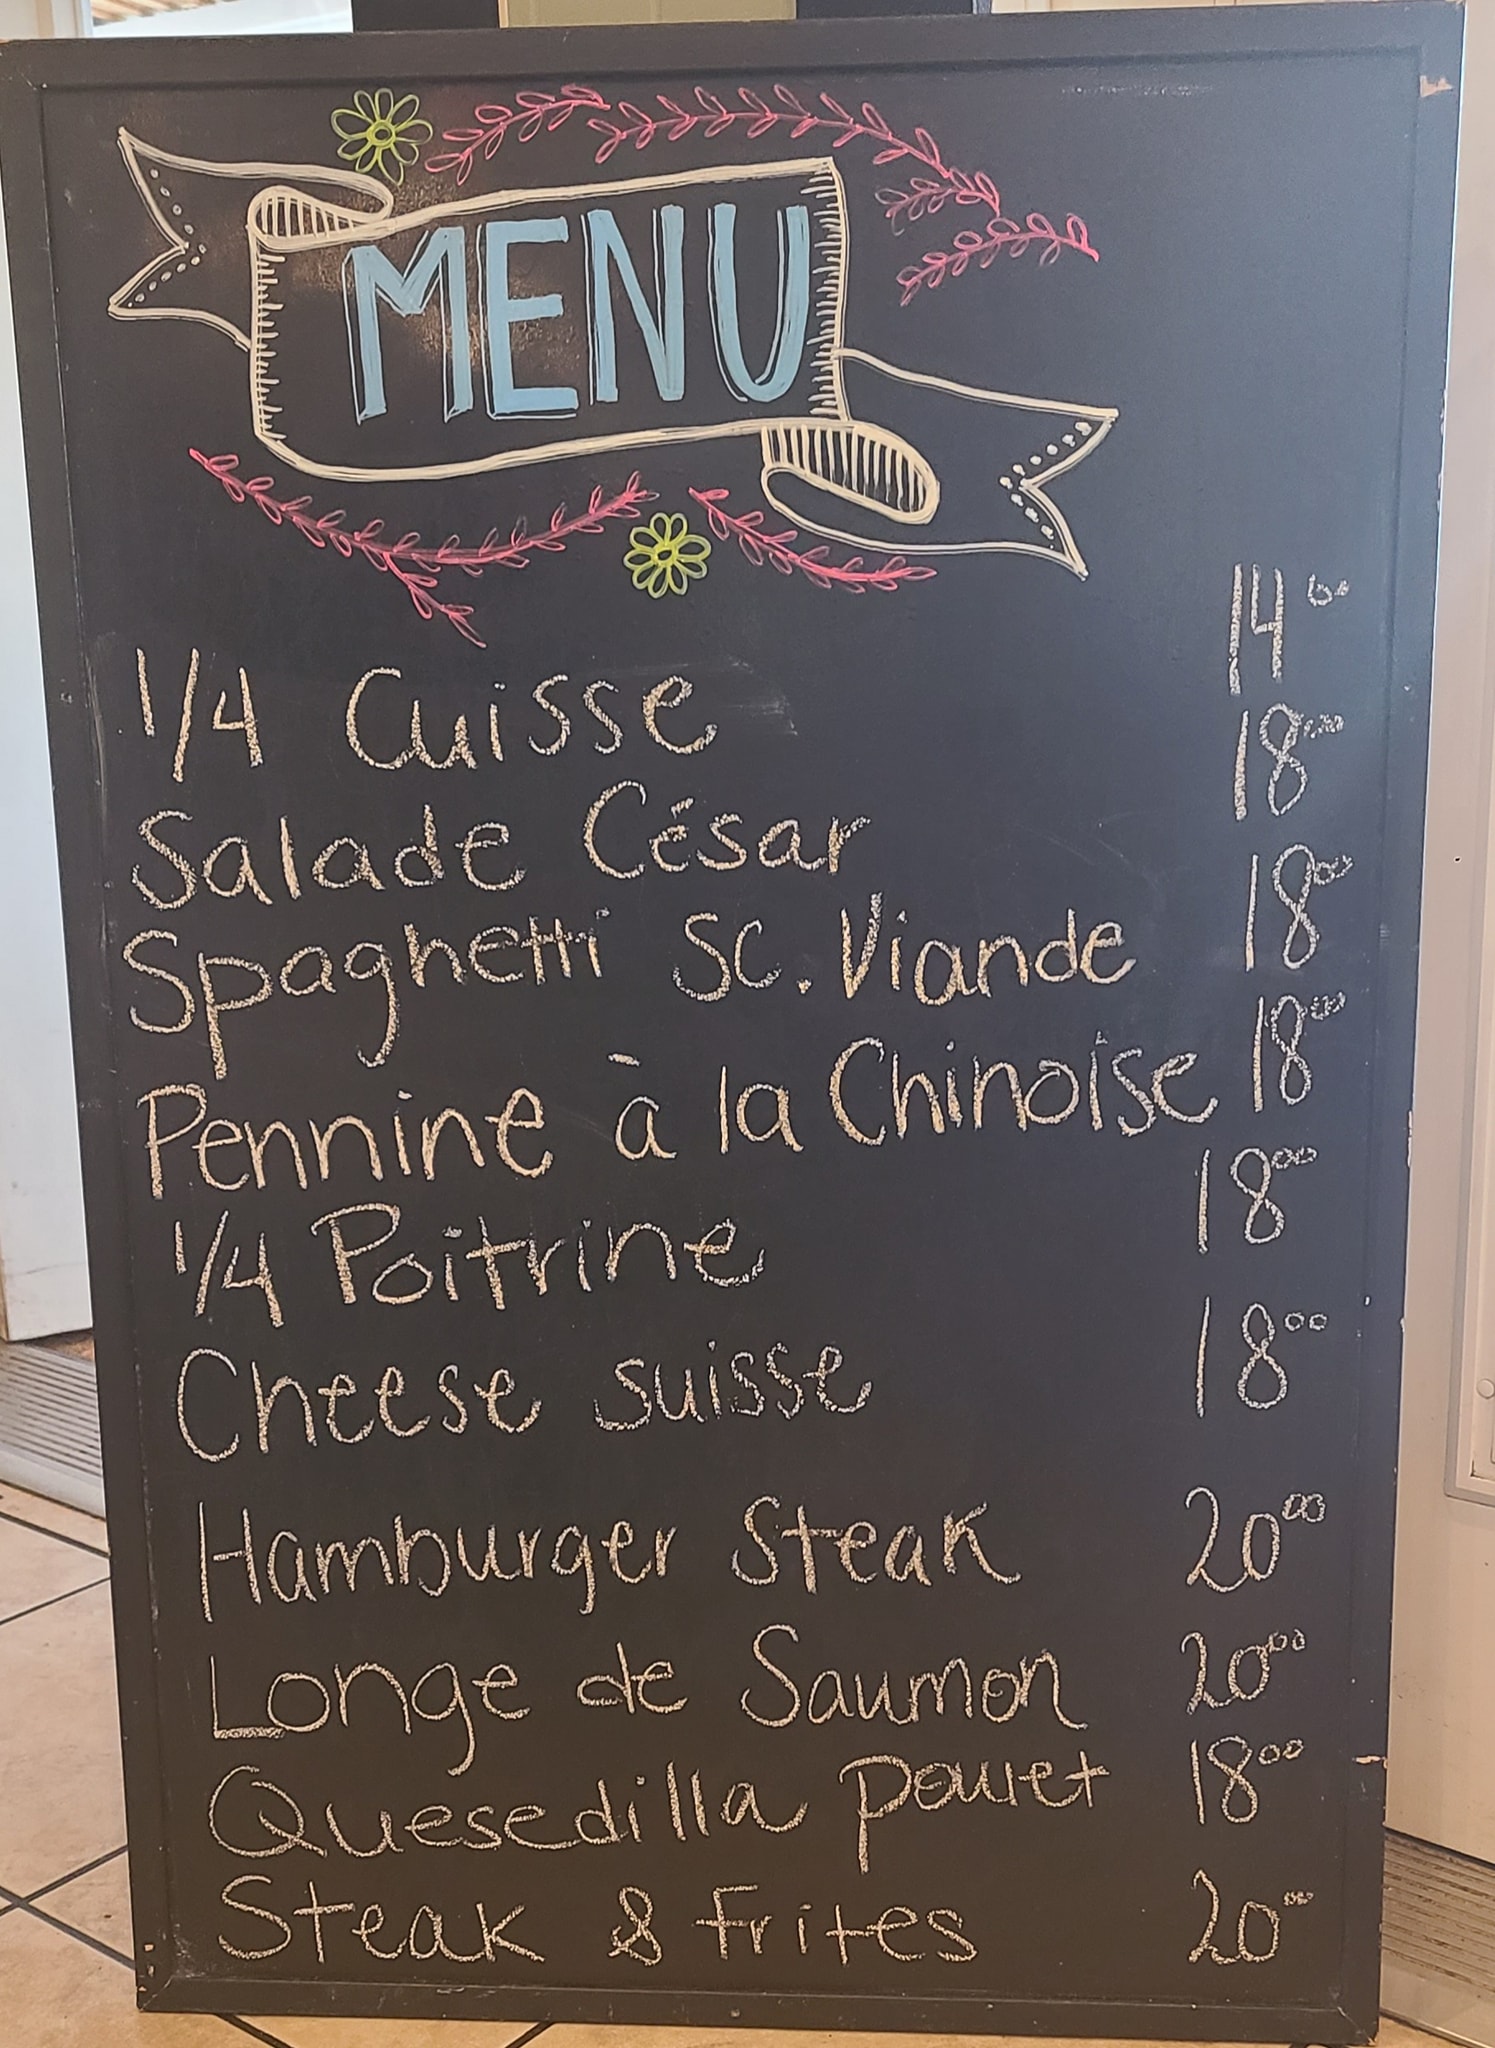 MENU
1/4 Cuisse 14 00
Salade César 18 00
Spaghetti Sc. Viande 18 00
Pennine à la Chinoise 18 00
1/4 Poitrine 18 00
Cheese suisse 18 00
Hamburger Steak 20 00
Longe de Saumon 20 00
Quesedilla poulet 18 00
Steak & Frites 20 00